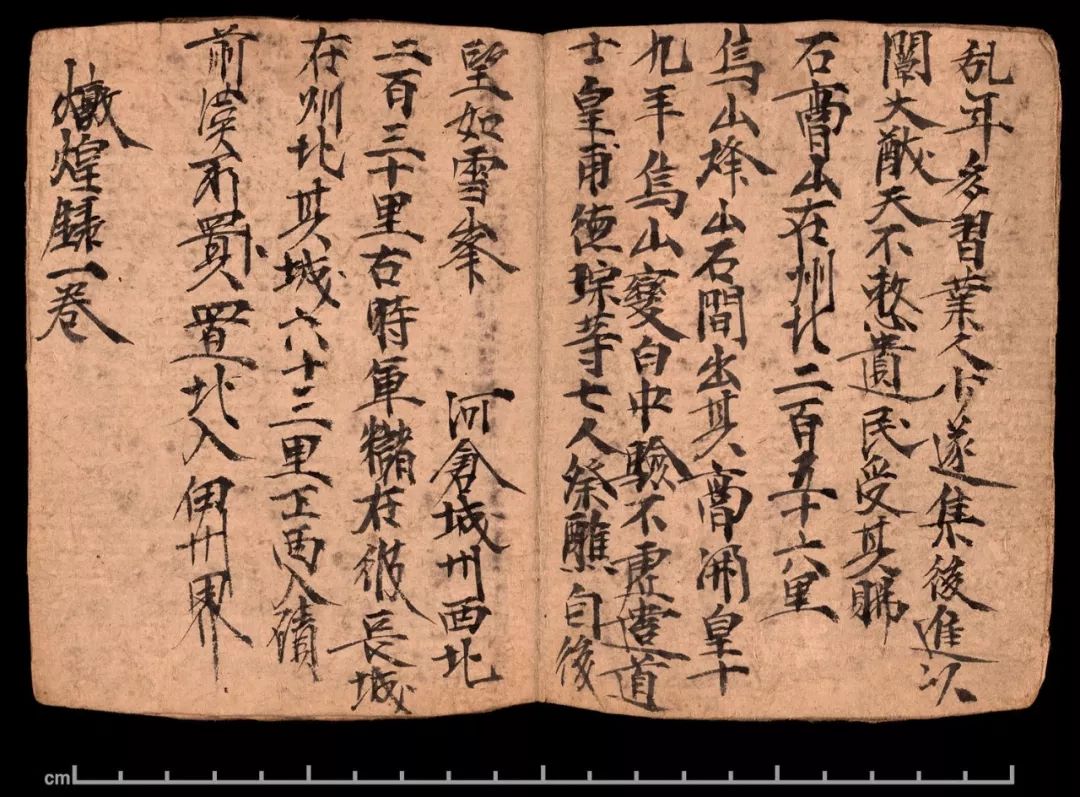 乱年多習業人皆遂集後進以
闡大猷天不憗遺民受其賜
石膏山在州北二百五十六里
烏山烽山石間出其膏開皇十
九年烏山變白中驗不虛遣道
士皇甫德琮等七人祭醮自後
望如雪峯 河倉城州西北
二百三十里古時軍儲在彼長城
在州北其城六十三里正西入磧
前漢所置北入伊州界
燉煌錄一卷
cm